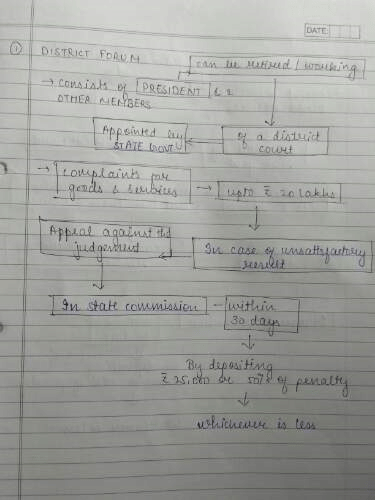 DATE:
① DISTRICT FORUM
can be retired / working
→ consists of PRESIDENT & 2
OTHER MEMBERS
Appointed by
STATE GOVT.
of a district
court
→ complaints for
goods & services
→ upto ₹ 20 lakhs
Appeal against the
judgement
In case of unsatisfactory
result
In state commission
within
30 days
By depositing
₹ 25,000 or 50% of penalty
whichever is less